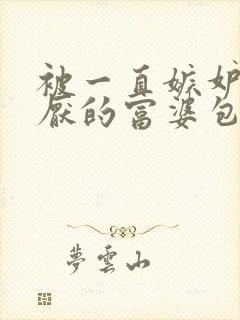 被一直嫉妒
厭的富婆包
夢雲山